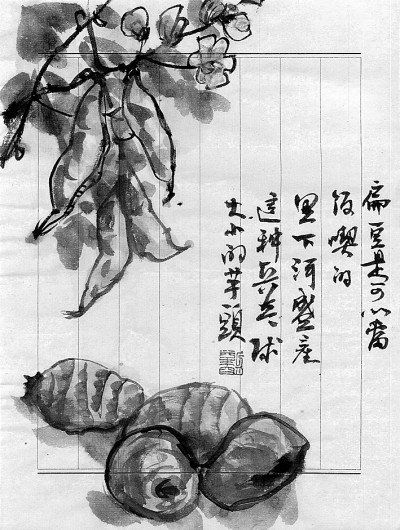 扁豆是可以當
飯喫的
里下河盛産
這种乒乓球
大小的芋頭